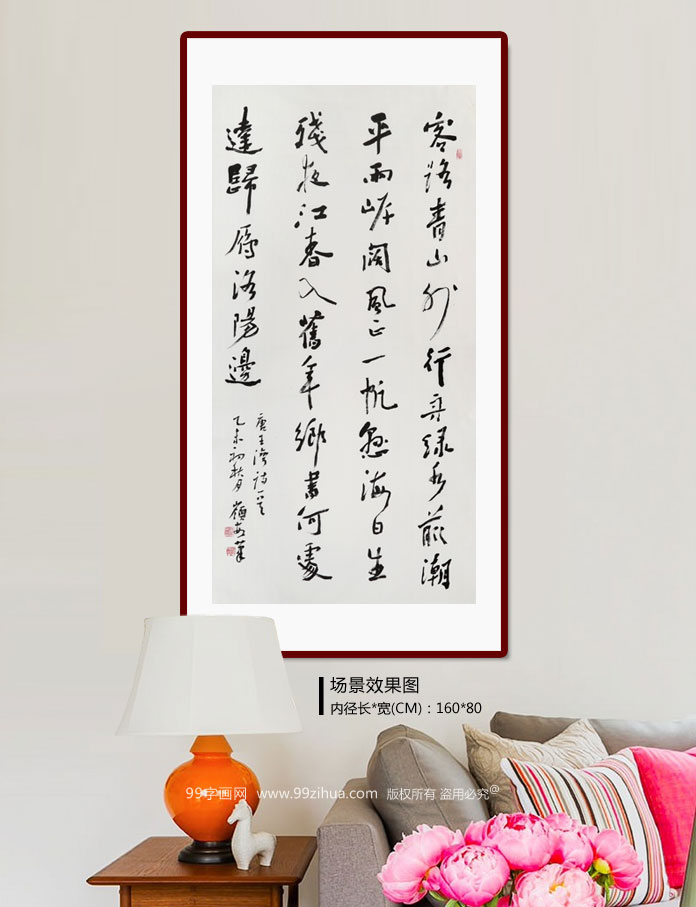 客路青山外行舟绿水前潮
平兩岸闊風正一帆懸海日生
殘夜江春入舊年鄉書何處
達歸雁洛陽邊
唐王灣詩一首
乙未初秋月
场景效果图
内径长*宽(CM)：160*80
99字画网 www.99zihua.com 版权所有 盗用必究@